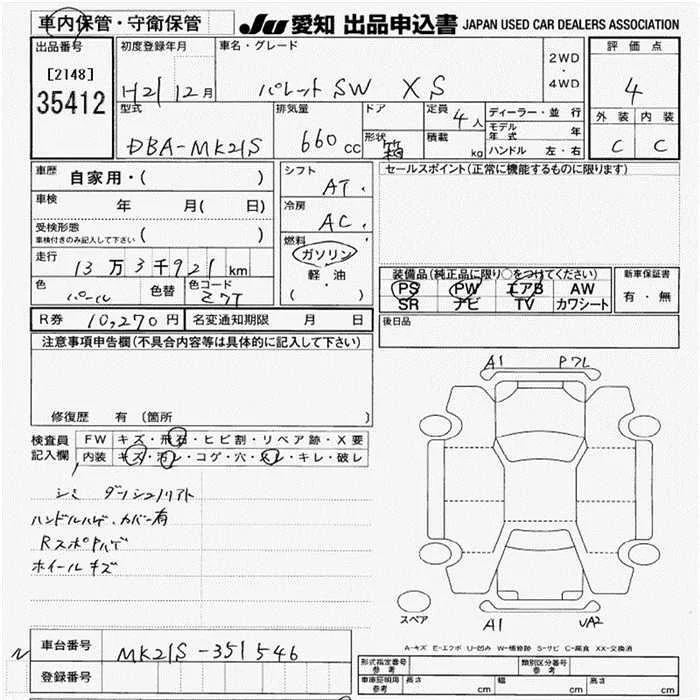 車内保管・守衛保管 JU 愛知 出品申込書 JAPAN USED CAR DEALERS ASSOCIATION
出品番号 初度登録年月 車名・グレード 評価点
[2148] 2WD・4WD
35412 H21 12月 パレット SW XS 4
型式 排気量 ドア 定員 4人 ディーラー・並行 外装 内装
DBA-MK21S 660cc 形状 箱 積載 kg モデル年式 年 C C
ハンドル 左・右
車歴 自家用・( ) シフト AT セールスポイント(正常に機能するものに限ります)
車検 年 月( 日) 冷房 AC
受検形態 車検付きのみ記入して下さい ( ) 燃料
走行 13万3千921km ガソリン 装備品(純正品に限り○をつけてください) 新車保証書
色 パール 色替 色コード Z7T 軽油 PS PW エアB AW 有・無
( ) SR ナビ TV カワシート
R券 10,270円 名変通知期限 月 日 後日品
注意事項申告欄(不具合内容等は具体的に記入して下さい)
A1 Pフレ
修復歴 有 〔箇所 〕
検査員 FW キズ・飛石・ヒビ割・リペア跡・X要
記入欄 内装 キズ・汚レ・コゲ・穴・スレ・キレ・破レ
シミ
ハンドルハゲ、カバー有
Rスポ Pハゲ
ホイールキズ
スペア A1 UA2
A-キズ E-エクボ U-凹み W-補修跡 S-サビ C-腐食 XX-交換済
車台番号 MK21S-351546
登録番号
形式指定番号 参考 類別区分番号 参考
車庫証明用 参考 長さ cm 幅 cm 高さ cm